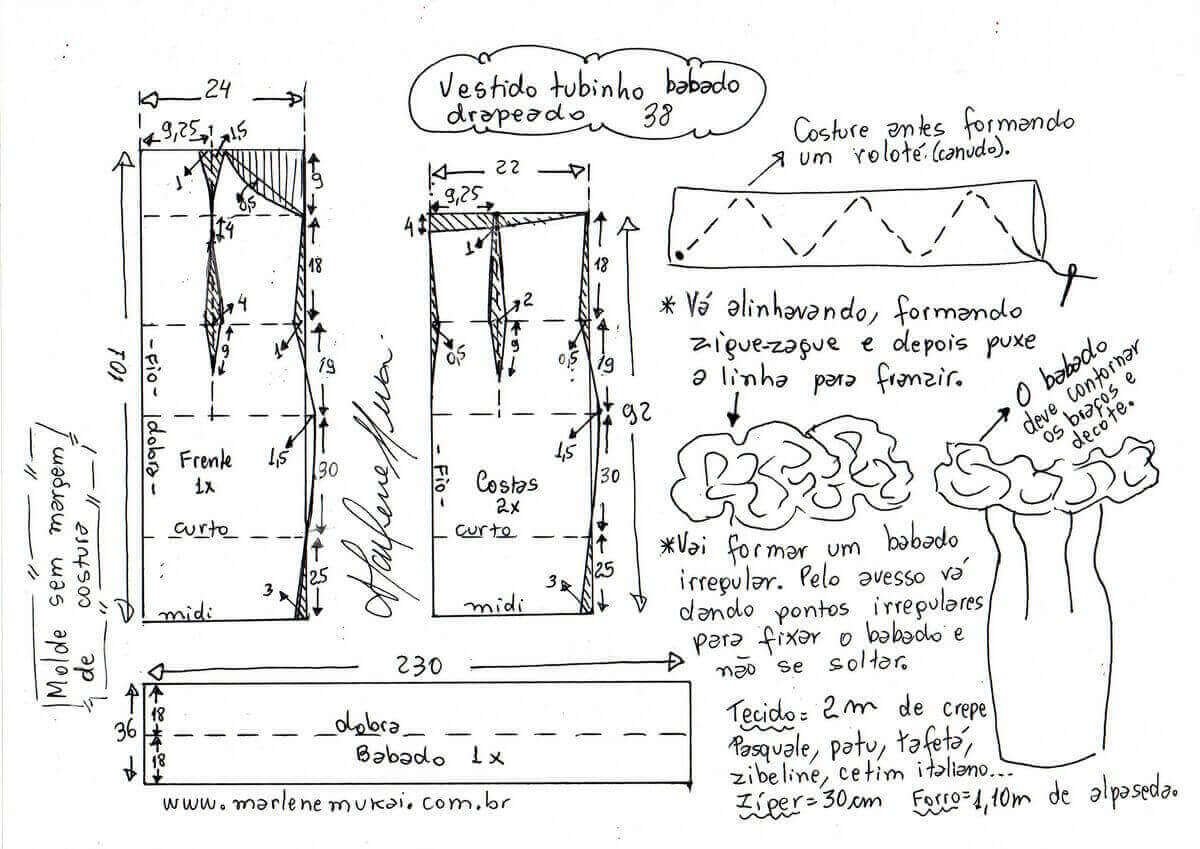 Vestido tubinho babado
drapeado 38
24
9,25
1,5
1
0,5
9
4
18
4
9
1
19
101
- Fio - dobra -
1,5
Frente
1x
30
curto
25
3
midi
Molde sem margem
de costura
22
9,25
4
1
18
2
0,5
9
0,5
19
92
- Fio -
1,5
Costas
2x
30
curto
25
3
midi
Marlene Mukai.
230
36
18
18
dobra
Babado 1x
www.marlenemukai.com.br
Costure antes formando
um roloté.(canudo).
* Vá alinhavando, formando
zigue-zague e depois puxe
a linha para franzir.
O babado
deve contornar
os braços e
decote.
*Vai formar um babado
irregular. Pelo avesso vá
dando pontos irregulares
para fixar o babado e
não se soltar.
Tecido= 2m de crepe
Pasquale, patu, tafetá,
zibeline, cetim italiano...
Zíper=30cm Forro=1,10m de alpaseda.